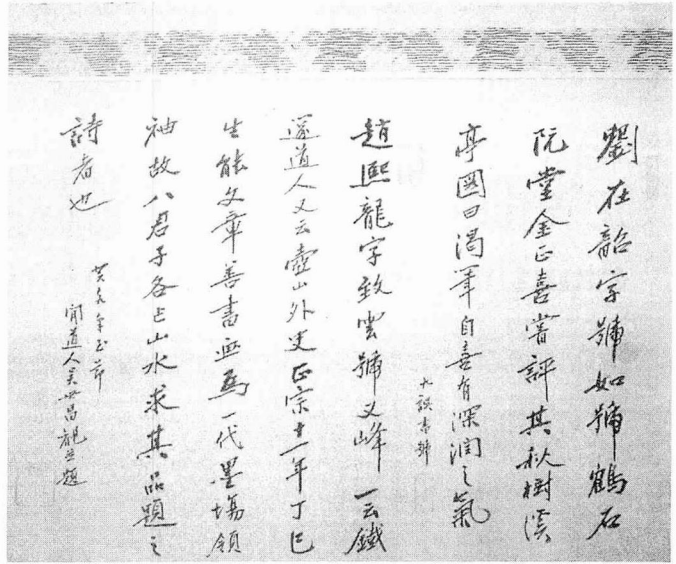 劉在韶字號如號鶴石
阮堂金正喜嘗評其秋樹溪
亭圖曰渴筆自喜有深潤之氣
趙熙龍字致雲號又峰一云鐵
道人又云壺山外史正宗十一年丁巳
生能文章善書為一代墨場領
袖故八君子各以山水求其品題之
詩者也
道人吳世昌觀並題